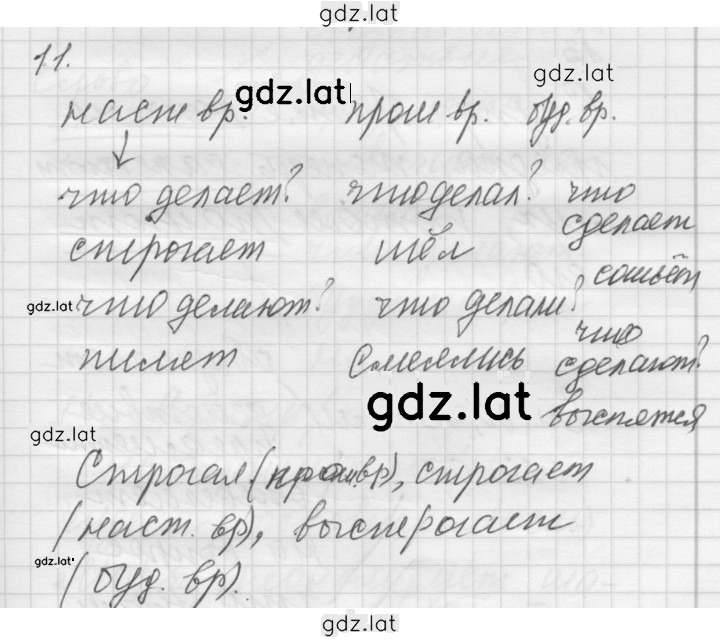 gdz.lat
11.
gdz.lat
наст вр. gdz.lat прош вр. буд. вр.
что делает? что делал? что
сделает
строгает шёл
сошьёт
gdz.lat что делают? что делали?
что
пилят смеялись сделают?
gdz.lat выспятся
gdz.lat
Строгал (прош.вр), строгает
(наст. вр), выстрогает
gdz.lat (буд. вр).
gdz.lat